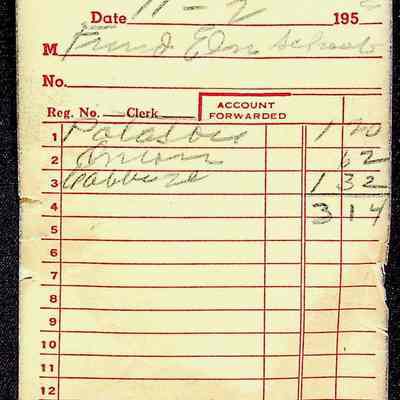 Date 11-2 195
M Friend Elm Schools
No.
Reg. No. Clerk ACCOUNT FORWARDED
1 Potatoes 1 20
2 Onions 62
3 Cabbage 1 32
4 3 14
5
6
7
8
9
10
11
12